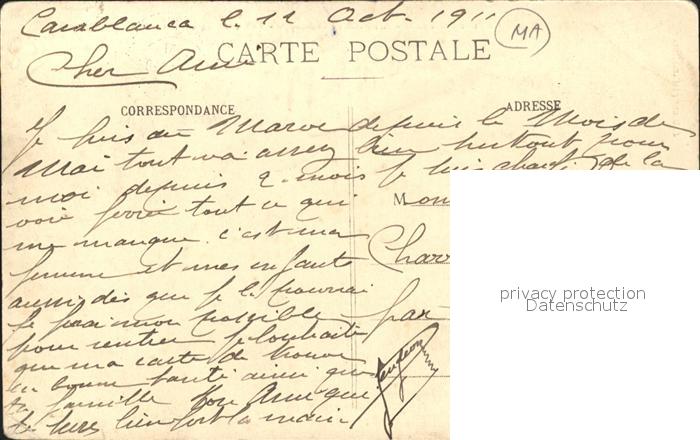 Casablanca l. 12 Oct. 1911
MA
CARTE POSTALE
Cher Ami
CORRESPONDANCE
ADRESSE
Je suis au Maroc depuis le Mois de
Mai tout va assez bien surtout pour
moi depuis 2 mois je suis chauf. de la
voie ferrée tout ce qui
me manque c'est ma
femme et mes enfants
aussi dès que je le pourrai
je ferai mon possible
pour rentrer je souhaite
que ma carte de trouve
en bonne santé ainsi que
ta famille Ton Ami que
te serre bien fort la main
Mon
Charr
par
privacy protection
Datenschutz